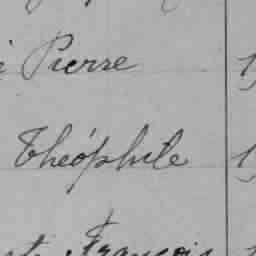 Pierre
Théophile
François